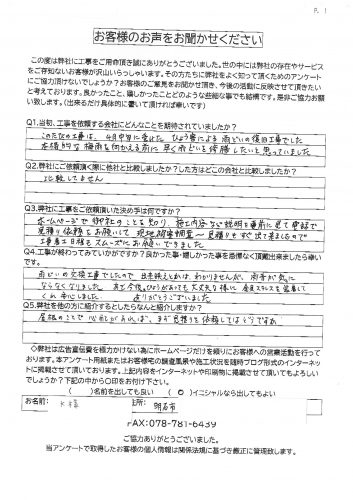 P. 1
お客様のお声をお聞かせください
この度は弊社に工事をご用命頂き誠にありがとうございました。世の中には弊社の存在やサービス
をご存知ないお客様が沢山いらっしゃいます。その方たちに弊社をよく知って頂くためのアンケート
にご協力頂けないでしょうか?お客様のご意見をお聞かせ頂き、今後の活動に反映させて頂きたい
と考えております。良かったこと、嬉しかったことなどの些細な事でも結構です。是非ご協力お願
い致します。(出来るだけ具体的に書いて頂ければ幸いです)
Q1.当初、工事を依頼する会社にどんなことを期待されていましたか?
このたびの工事は、4月中旬に発生した ひょう害による 雨どいの復旧工事でした
本格的な 梅雨を向かえる前に 早く雨どいを修復したいと思っていました
Q2.弊社にご依頼頂く際に他社と比較しましたか?した方はどこの会社と比較しましたか?
比較してません
Q3.弊社に工事をご依頼頂いた決め手は何ですか?
ホームページで 御社のことを知り、施工内容など説明を事前に見て電話で
見積り依頼をお願いして 現地調査 見積りもすぐ出て来ましたので
工事着工日程も スムーズに お願いできました
Q4.工事が終わってみていかがですか?良かった事・嬉しかった事を忌憚なく頂戴出来ましたら幸い
です。
雨どいの交換工事でしたので 出来映えとかは、わかりませんが、雨音が気に
ならなくなりました また今後ひょうがふっても大丈夫な様に 金具ステンレスを 装着して
くれ 安心しました ありがとうございました
Q5.弊社を他の方に紹介するとしたらなんと紹介しますか?
屋根のことで 心配があれば、まず見積りを依頼してはどうですか
◇弊社は広告宣伝費を極力かけない為にホームページだけを頼りにお客様への営業活動を行って
おります。本アンケート用紙またはお客様宅の調査風景や施工状況を随時ブログ形式のインターネッ
トに掲載させて頂いております。上記内容をインターネットや印刷物に掲載させて頂いてもよろしい
でしょうか?下記の中から〇印をお付け下さい。
( )名前を出しても良い (〇)イニシャルなら出してもよい
お名前: K 様 住所: 明石市
FAX:078-781-6439
ご協力ありがとうございました。
当アンケートで取得したお客様の個人情報は関係法規に基づき厳正に管理致します。